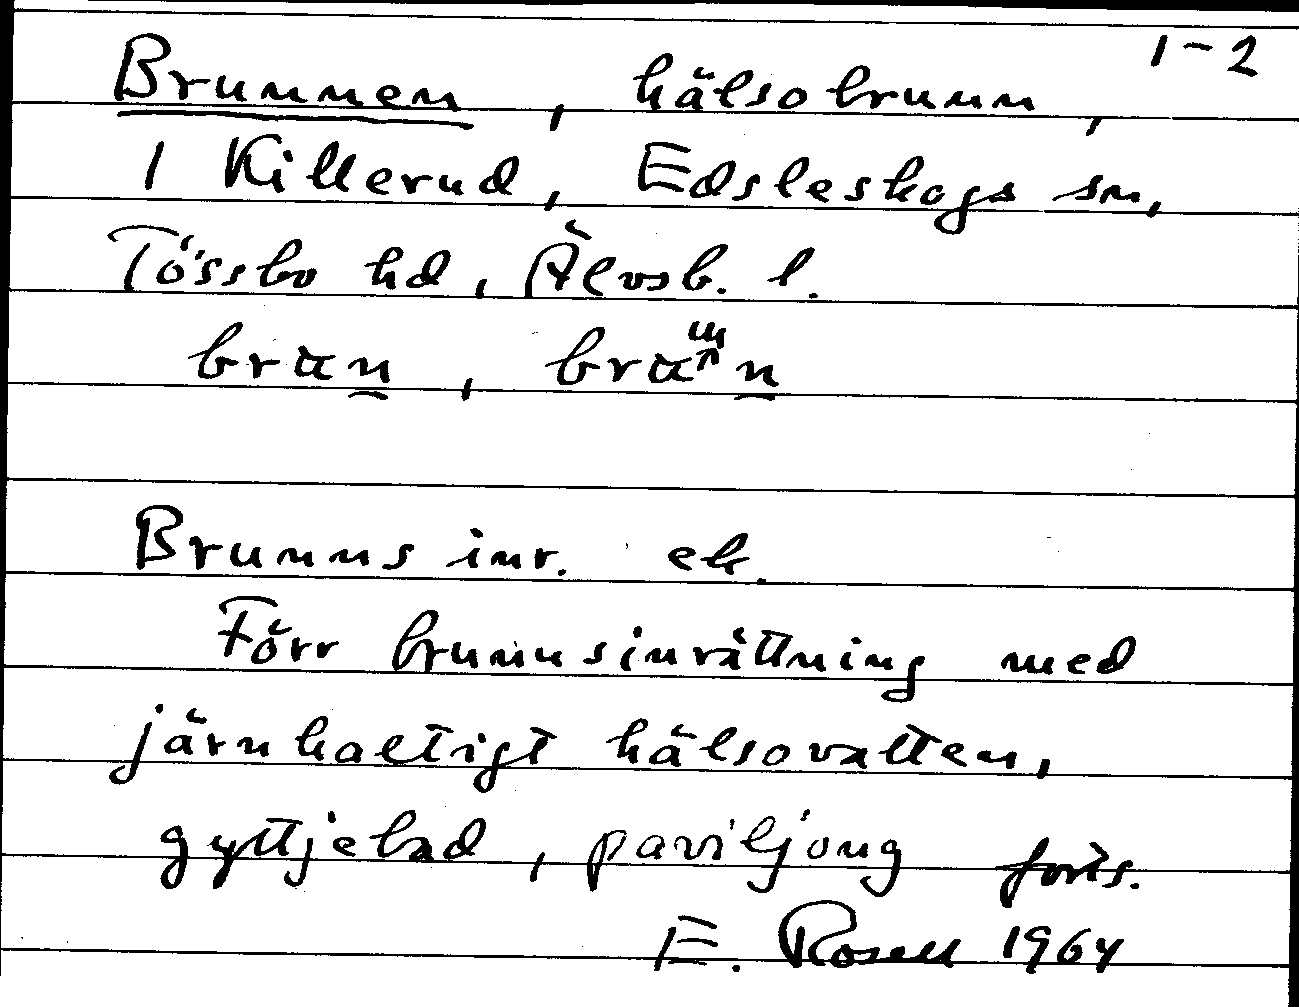 1-2
Brunnen, hälsobrunn,
I Killerud, Edsleskogs sn,
Tössbo hd, Älvsb. l.
Brunns inr. ek.
Förr brunnsinrättning med
järnhaltigt hälsovatten,
gyttjebad, paviljong forts.
E. Rosell 1964